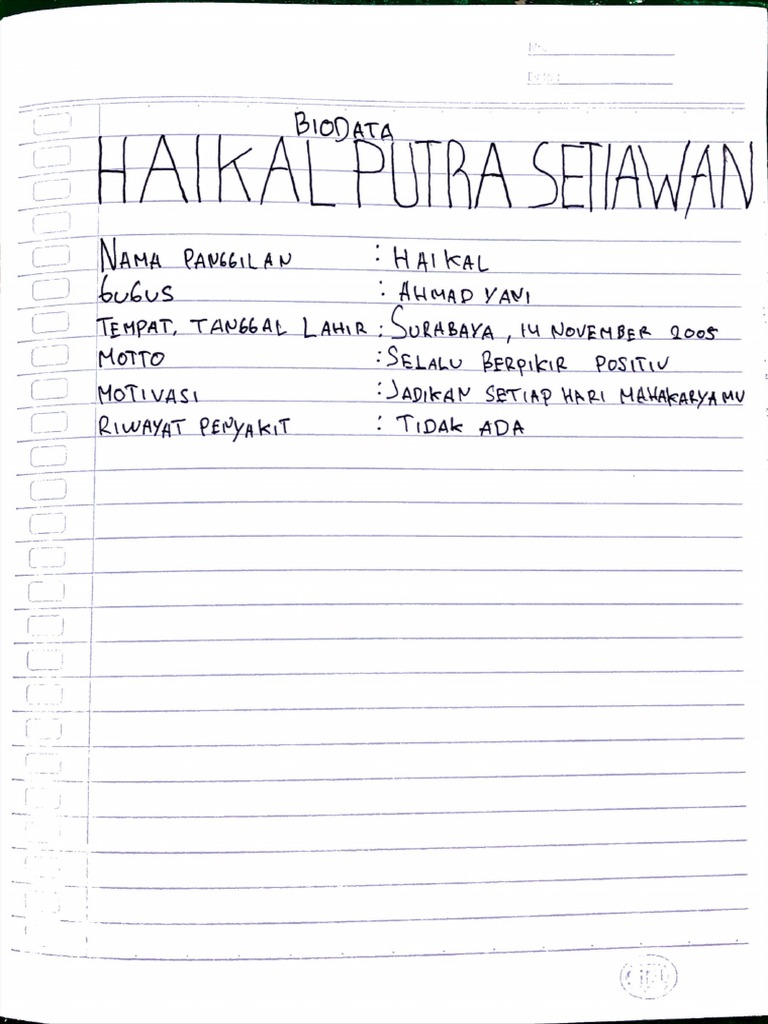 No.
Date:
BIODATA
HAIKAL PUTRA SETIAWAN
NAMA PANGGILAN : HAIKAL
GUGUS : AHMAD YANI
TEMPAT, TANGGAL LAHIR : SURABAYA, 14 NOVEMBER 2005
MOTTO : SELALU BERPIKIR POSITIV
MOTIVASI : JADIKAN SETIAP HARI MAHAKARYAMU
RIWAYAT PENYAKIT : TIDAK ADA